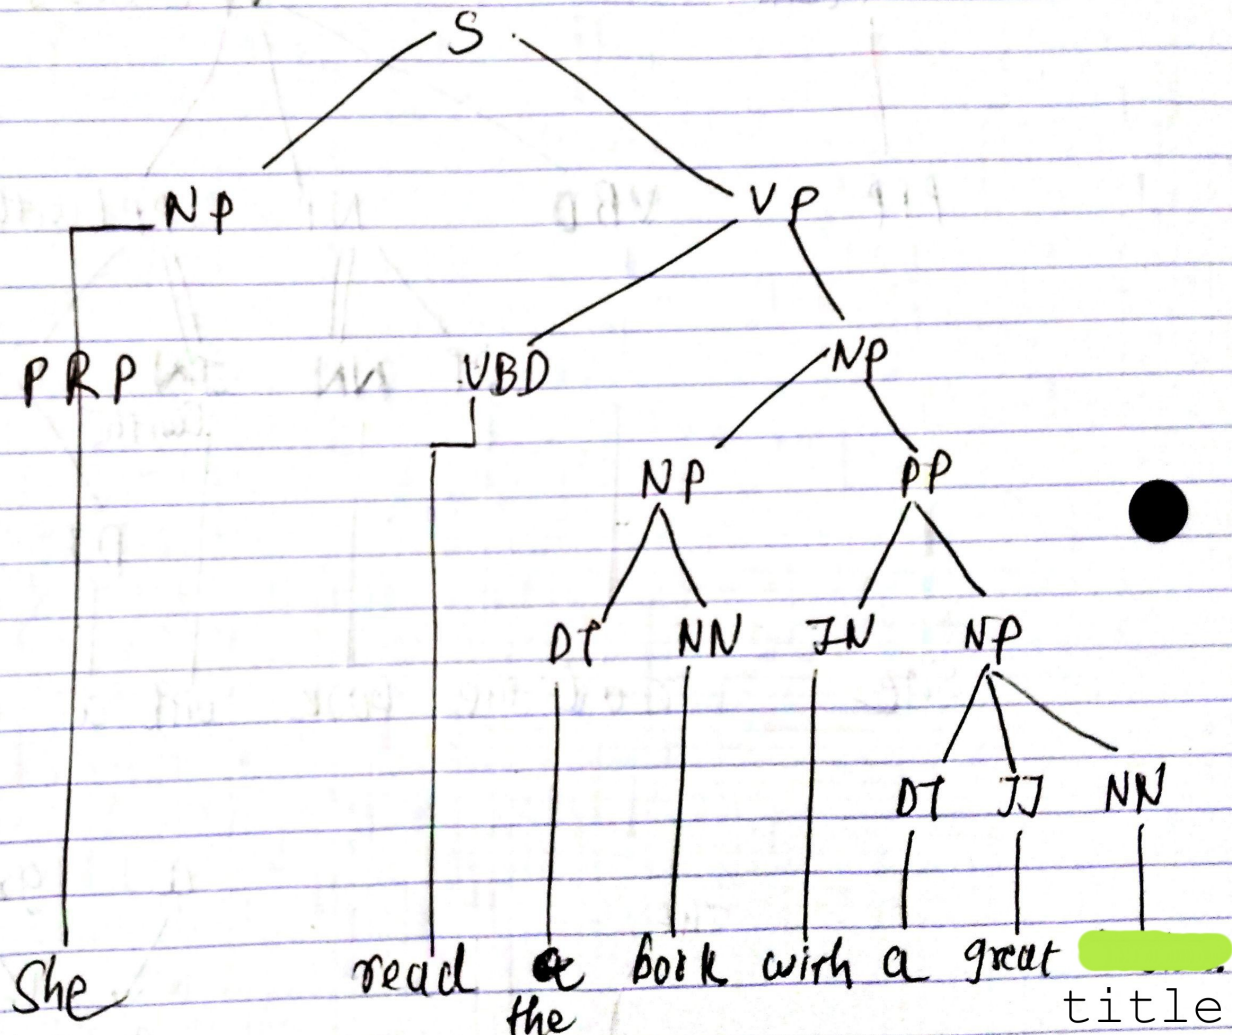 S
NP VP
PRP VBD NP
NP PP
DT NN IN NP
DT JJ NN
She read book with a great
the title